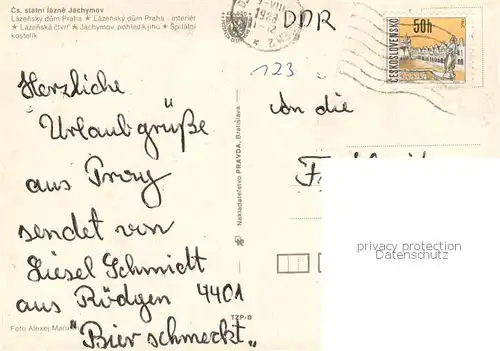 Čs. státní lázně Jáchymov
Lázeňský dům Praha ★ Lázeňský dům Praha - interiér
★ Lázeňská čtvrť ★ Jáchymov, pohled k jihu ★ Špitální
kostelík
DDR
ČESKOSLOVENSKO
50h
123
Herzliche
Urlaubgrüße
aus Prag
sendet von
Liesel Schmidt
aus Rödgen 4401
"Bier schmeckt"
An die
Nakladatelství PRAVDA, Bratislava
TZP-B
Foto Alexej
privacy protection
Datenschutz